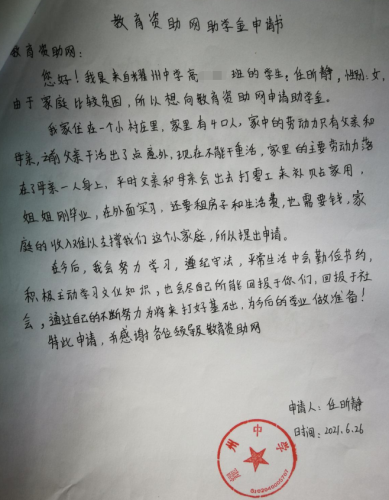 教育资助网助学金申请书
教育资助网:
您好!我是来自耀州中学高 班的学生:任昕静,性别:女,
由于家庭比较贫困,所以想向教育资助网申请助学金。
我家住在一个小村庄里,家里有4口人,家中的劳动力只有父亲和
母亲,之前父亲干活出了点意外,现在不能干重活,家里的主要劳动力落
在了母亲一人身上,平时父亲和母亲会出去打零工来补贴家用,
姐姐刚毕业,在外面实习,还要租房子和生活费,也需要钱,家
庭的收入难以支撑我们这个小家庭,所以提出申请。
在今后,我会努力学习,遵纪守法,平常生活中会勤俭节约,
积极主动学习文化知识,也会尽自己所能回报于你们,回报于社
会,通过自己的不断努力为将来打好基础,为今后的学业做准备!
特此申请,并感谢各位领导及教育资助网
申请人:任昕静
日期:2021.6.26
耀州中学